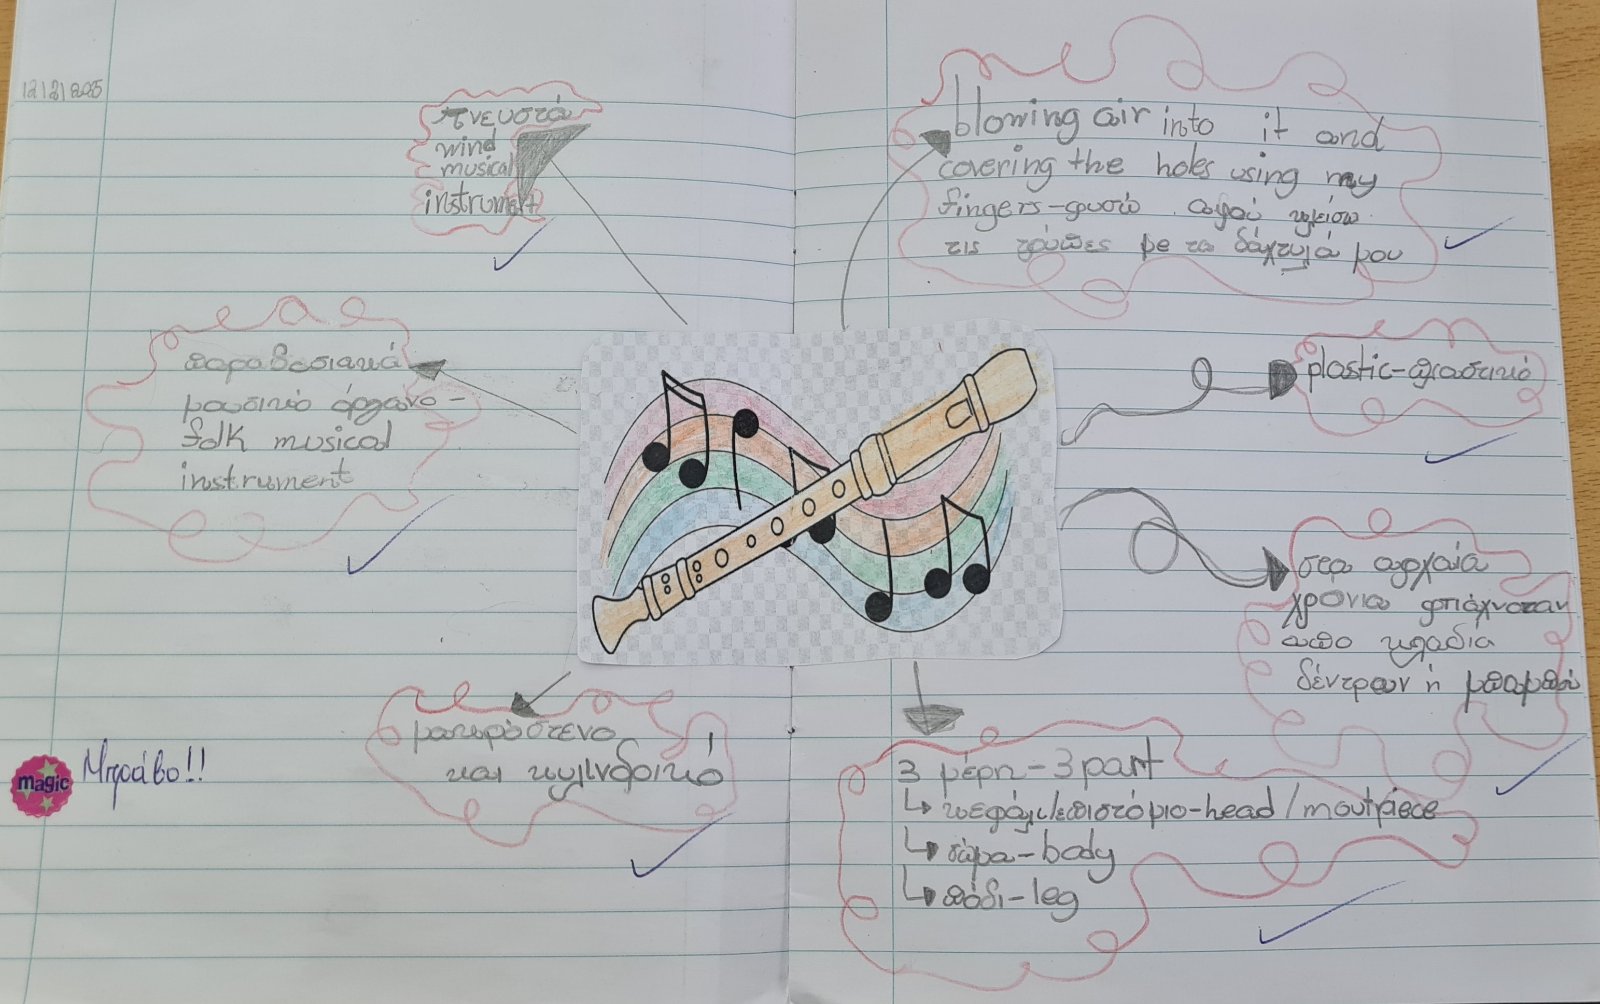 12/2/2025
πνευστά
wind
musical
instrument
blowing air into it and
covering the holes using my
fingers-φυσώ αφού κλείσω
τις τρύπες με τα δάχτυλά μου
παραδοσιακό
μουσικό όργανο-
folk musical
instrument
plastic-πλαστικό
στα αρχαία
χρόνια φτιάχνοταν
απο κλαδια
δέντρων ή μπαμπού
μακρόστενο
και κυλινδρικό
3 μέρη-3 part
↳κεφάλι/επιστόμιο-head/moutpiece
↳σώμα-body
↳πόδι-leg
magic
Μπράβο!!